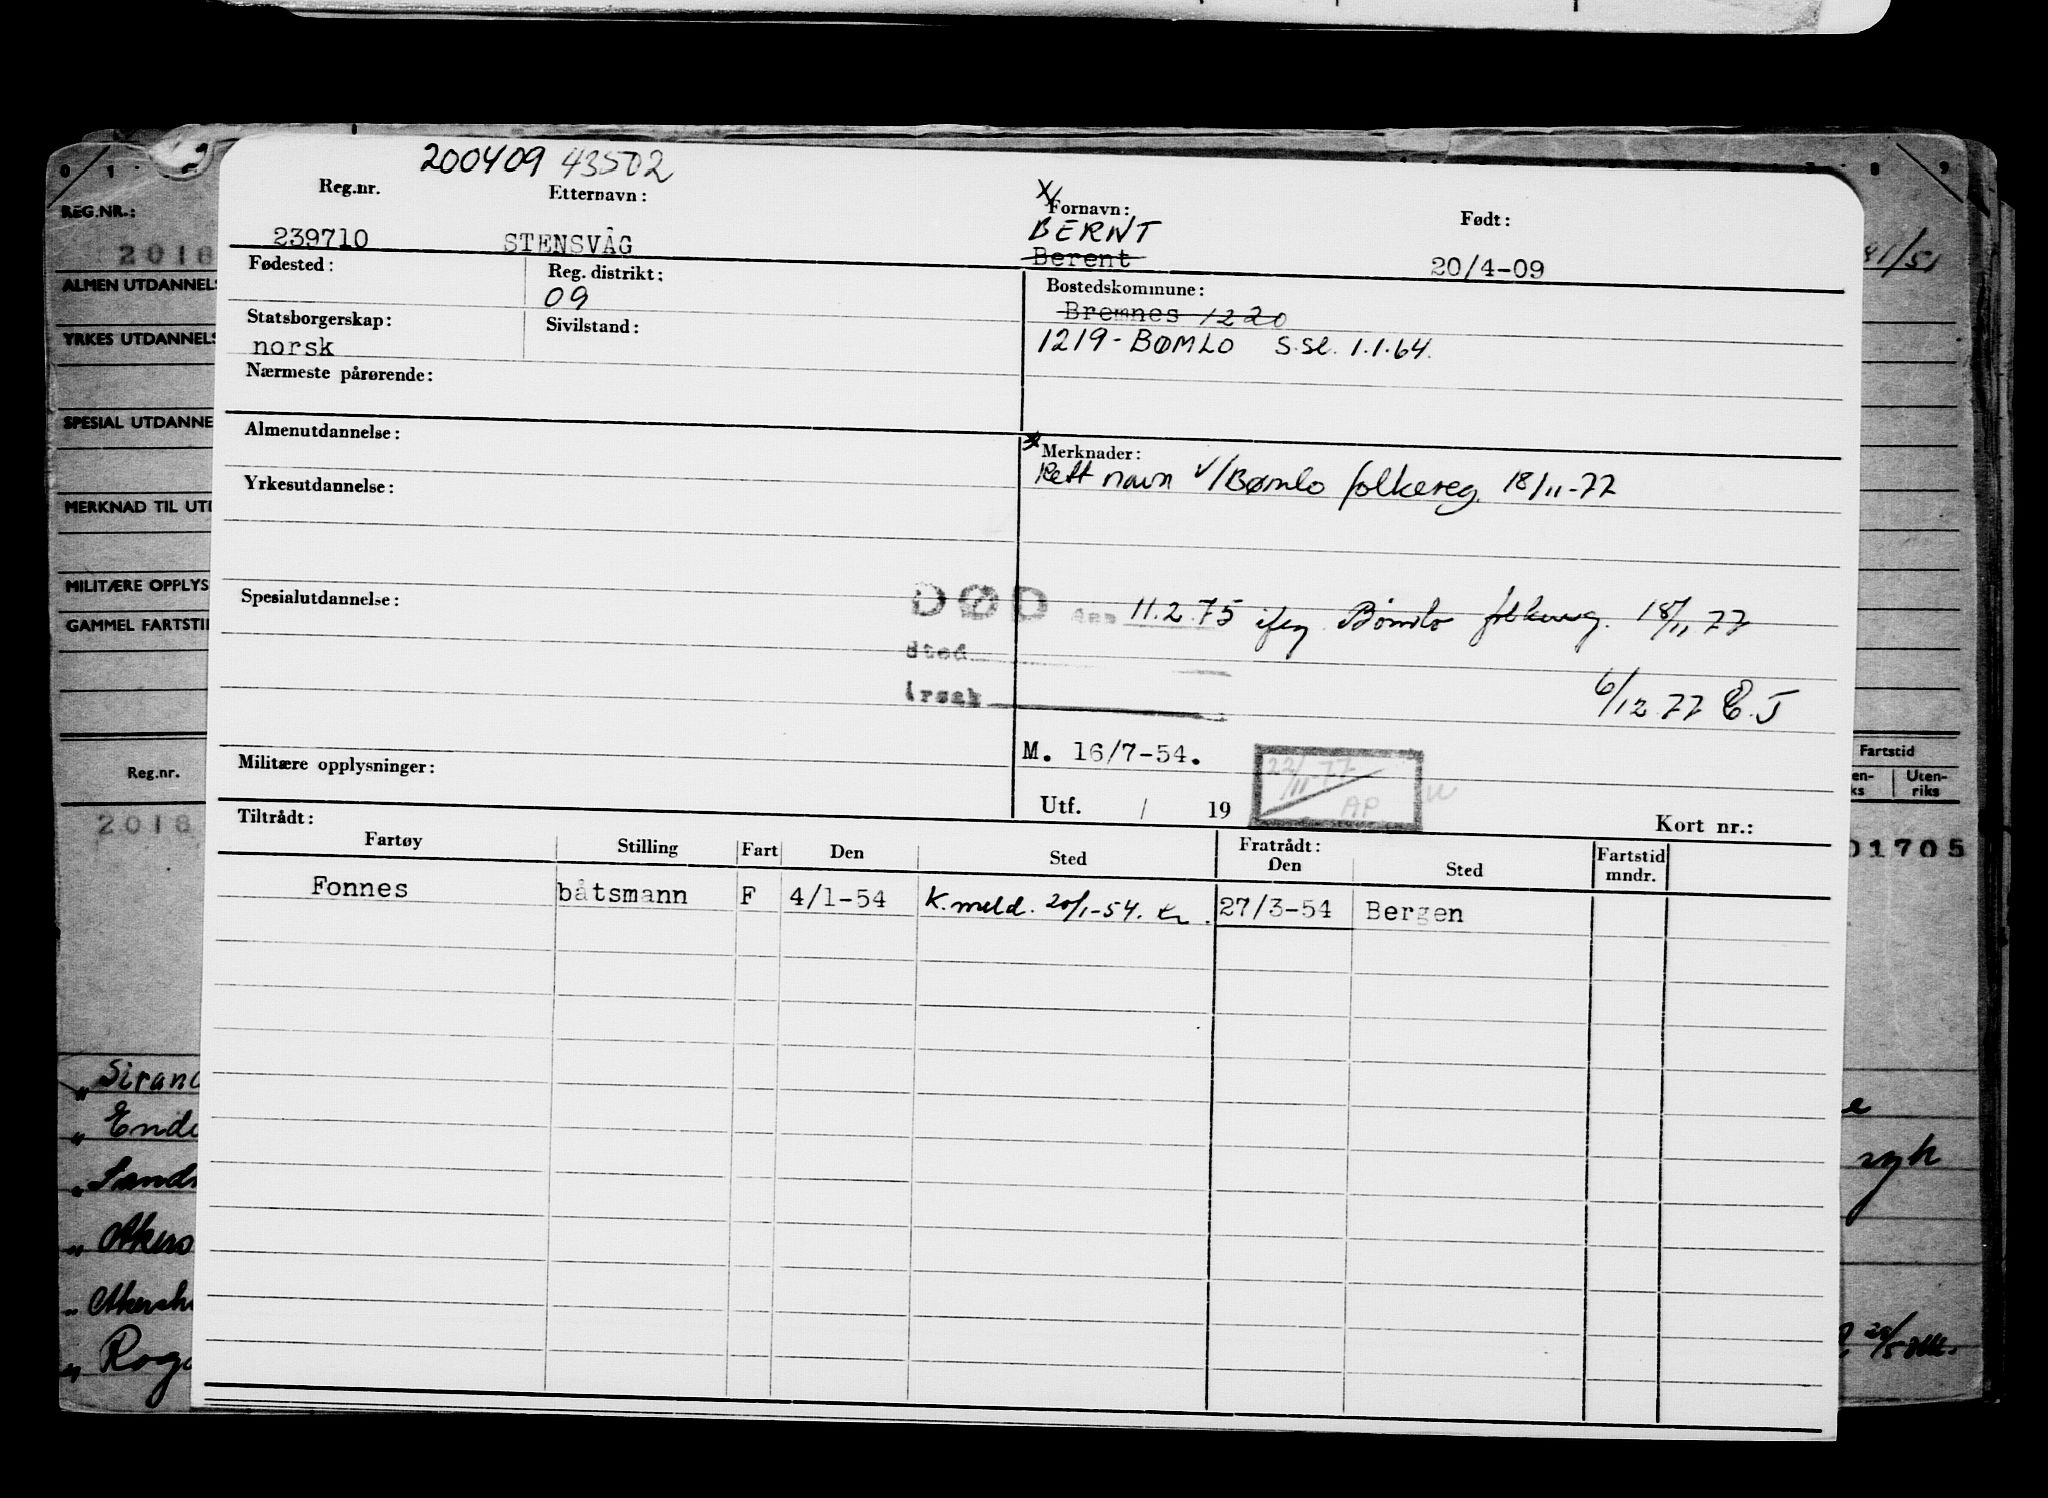 200409 43502
Reg.nr. Etternavn: Fornavn: Født:
239710 STENSVÅG BERNT
Berent 20/4-09
Fødested: Reg. distrikt: Bostedskommune:
09 Bremnes 1220
Statsborgerskap: Sivilstand:
norsk 1219-BØMLO S.SE. 1.1.64.
Nærmeste pårørende:
Almenutdannelse: Merknader:
Rett navn v/Bømlo folkereg. 18/11-77
Yrkesutdannelse:
Spesialutdannelse: DØD den 11.2.75 ifeg. Bømlo folkereg. 18/11 77
Sted
Årsak 6/12 77 E.J
M. 16/7-54. 22/11-77 AP
Militære opplysninger: Utf. / 19 Kort nr.:
Tiltrådt: Fratrådt:
Fartøy Stilling Fart Den Sted Den Sted Fartstid mndr.
Fonnes båtsmann F 4/1-54 K.meld. 20/1-54. 27/3-54 Bergen
0 1 8 9
REG.NR.:
2018 41/51
ALMEN UTDANNELS
YRKES UTDANNELS
SPESIAL UTDANNE
MERKNAD TIL UT
MILITÆRE OPPLYS
GAMMEL FARTSTI
Reg.nr. Fartstid
en-ks Uten-riks
2018 01705
Siran
Ende
Sand
Akers
Akersh
Roga